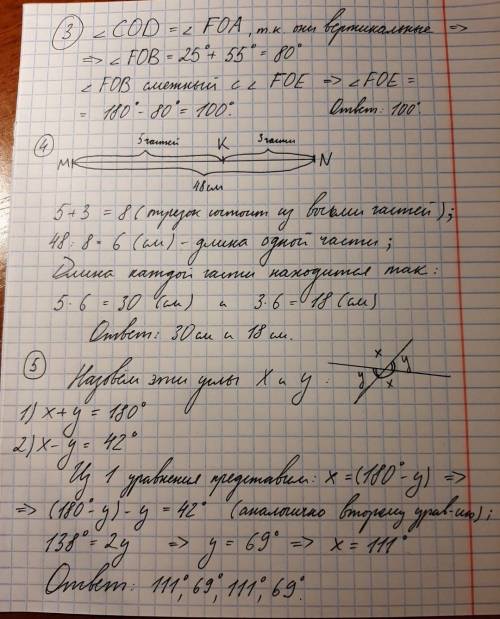 3 ∠COD = ∠FOA, т.к. они вертикальные =>
=> ∠FOB = 25° + 55° = 80°
∠FOB смежный с ∠FOE => ∠FOE =
= 180° - 80° = 100°. Ответ: 100°.
4 5 частей K 3 части
M N
48 см
5+3 = 8 (отрезок состоит из восьми частей);
48 : 8 = 6 (см) - длина одной части;
Длина каждой части находится так:
5·6 = 30 (см) и 3·6 = 18 (см)
Ответ: 30 см и 18 см.
5 Назовём эти углы x и y : x y
y x
1) x+y = 180°
2) x-y = 42°
Из 1 уравнения представим: x = (180° - y) =>
=> (180° - y) - y = 42° (аналогично второму урав-ию);
138° = 2y => y = 69° => x = 111°
Ответ: 111°, 69°, 111°, 69°.